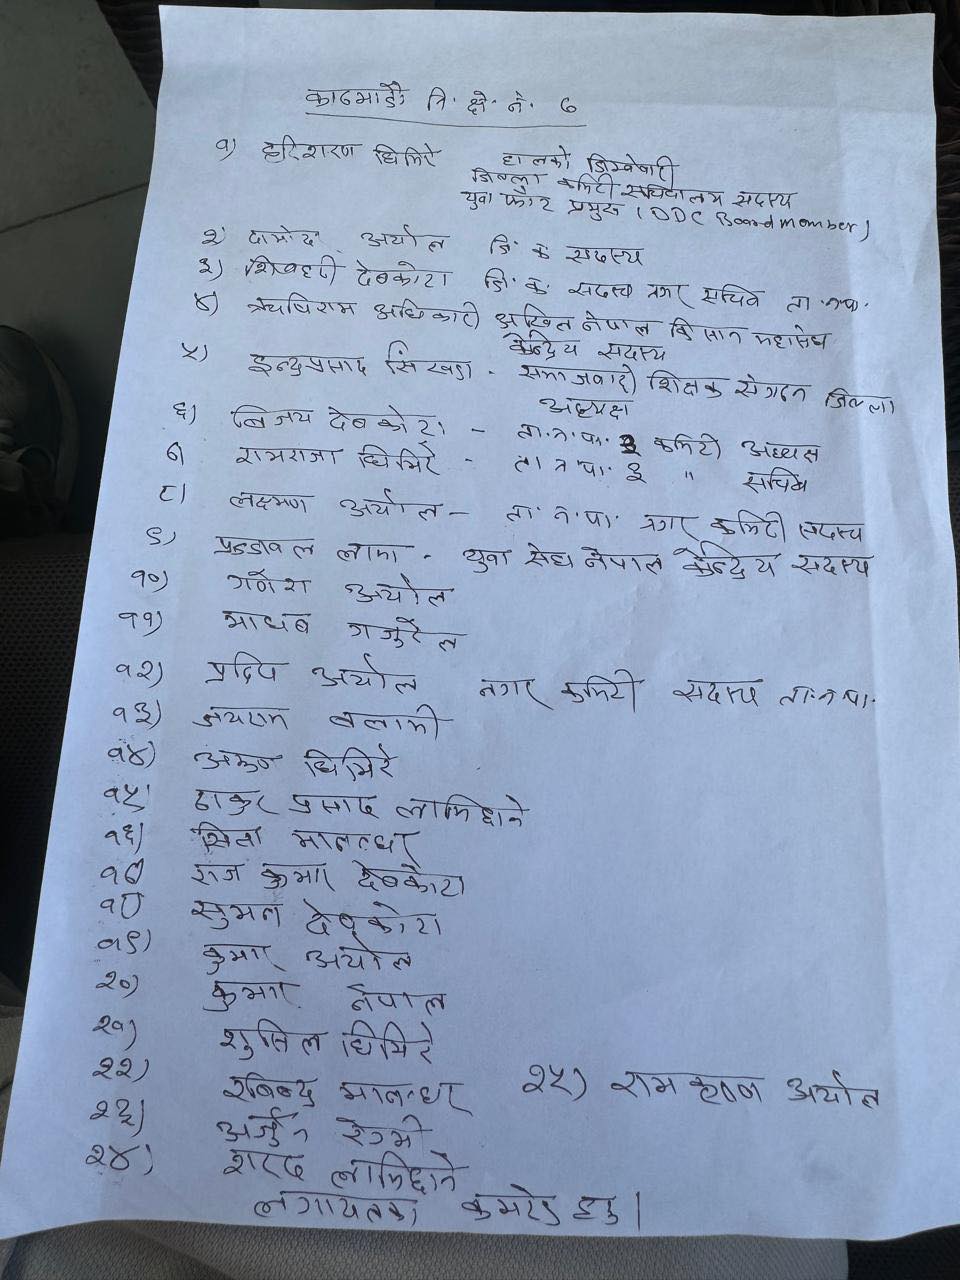 काठमाडौँ नि. क्षे. नं. ७
१) हरिशरण घिमिरे हालको जिम्वेवारी
जिल्ला कमिटी सचिवालय सदस्य
युवा फाँट प्रमुख (DDC Board member)
२) दामोदर अर्याल जि. क सदस्य
३) शिवहरी देवकोटा जि. क. सदस्य नगर सचिव ता. न. पा.
४) अधिकारी अखिल नेपाल किसान महासंघ
केन्द्रिय सदस्य
५) इन्द्रप्रसाद सिंखडा - समाजवादी शिक्षक संगठन जिल्ला
अध्यक्ष
६) विजय देवकोटा - ता. न. पा. ३ कमिटी अध्यक्ष
७) रामराजा घिमिरे - ता न पा. ३ " सचिव
८) लक्ष्मण अर्याल - ता. न. पा. नगर कमिटी सदस्य
९) लामा - युवा संघ नेपाल केन्द्रिय सदस्य
१०) गणेश अर्याल
११) माधव गजुरेल
१२) प्रदिप अर्याल नगर कमिटी सदस्य ता. न. पा.
१३) जयराम बलामी
१४) घिमिरे
१५) ठाकुर प्रसाद लामिछाने
१६) सिता मानन्धर
१७) राज कुमार देवकोटा
१८) सुमन देवकोटा
१९) कुमार अर्याल
२०) कुमार नेपाल
२१) शुसिल घिमिरे
२२) रविन्द्र मानन्धर २५) रामकृष्ण अर्याल
२३) अर्जुन रेग्मी
२४) शरद लामिछाने
लगायतका कमरेड हरु ।